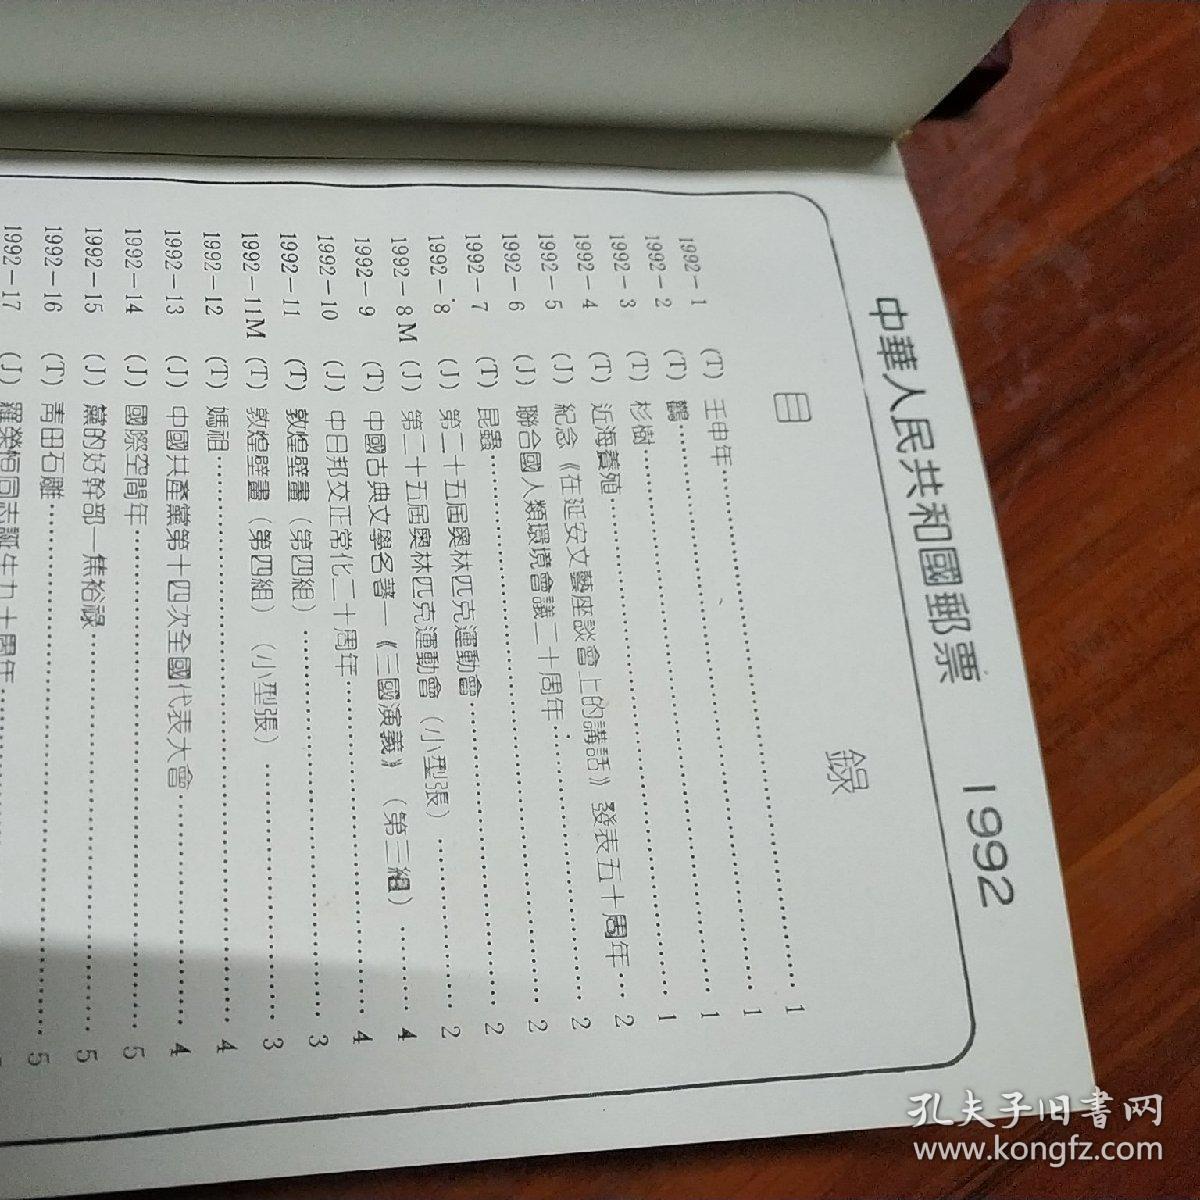 中華人民共和國郵票 1992
目 錄
1992－1 (T) 壬申年……1
1992－2 (T) 鸛……1
1992－3 (T) 杉樹……1
1992－4 (T) 近海養殖……1
1992－5 (J) 紀念《在延安文藝座談會上的講話》發表五十周年…2
1992－6 (J) 聯合國人類環境會議二十周年……2
1992－7 (T) 昆蟲……2
1992－8 (J) 第二十五屆奧林匹克運動會……2
1992－8M (J) 第二十五屆奧林匹克運動會（小型張）……2
1992－9 (T) 中國古典文學名著－《三國演義》（第三組）……4
1992－10 (J) 中日邦交正常化二十周年……4
1992－11 (T) 敦煌壁畫（第四組）……3
1992－11M (T) 敦煌壁畫（第四組）（小型張）……3
1992－12 (T) 媽祖……4
1992－13 (J) 中國共產黨第十四次全國代表大會……4
1992－14 (J) 國際空間年……5
1992－15 (J) 黨的好幹部－焦裕祿……5
1992－16 (T) 青田石雕……5
1992－17 (J) 羅榮恒同志誕生九十周年……
孔夫子旧書网
www.kongfz.com